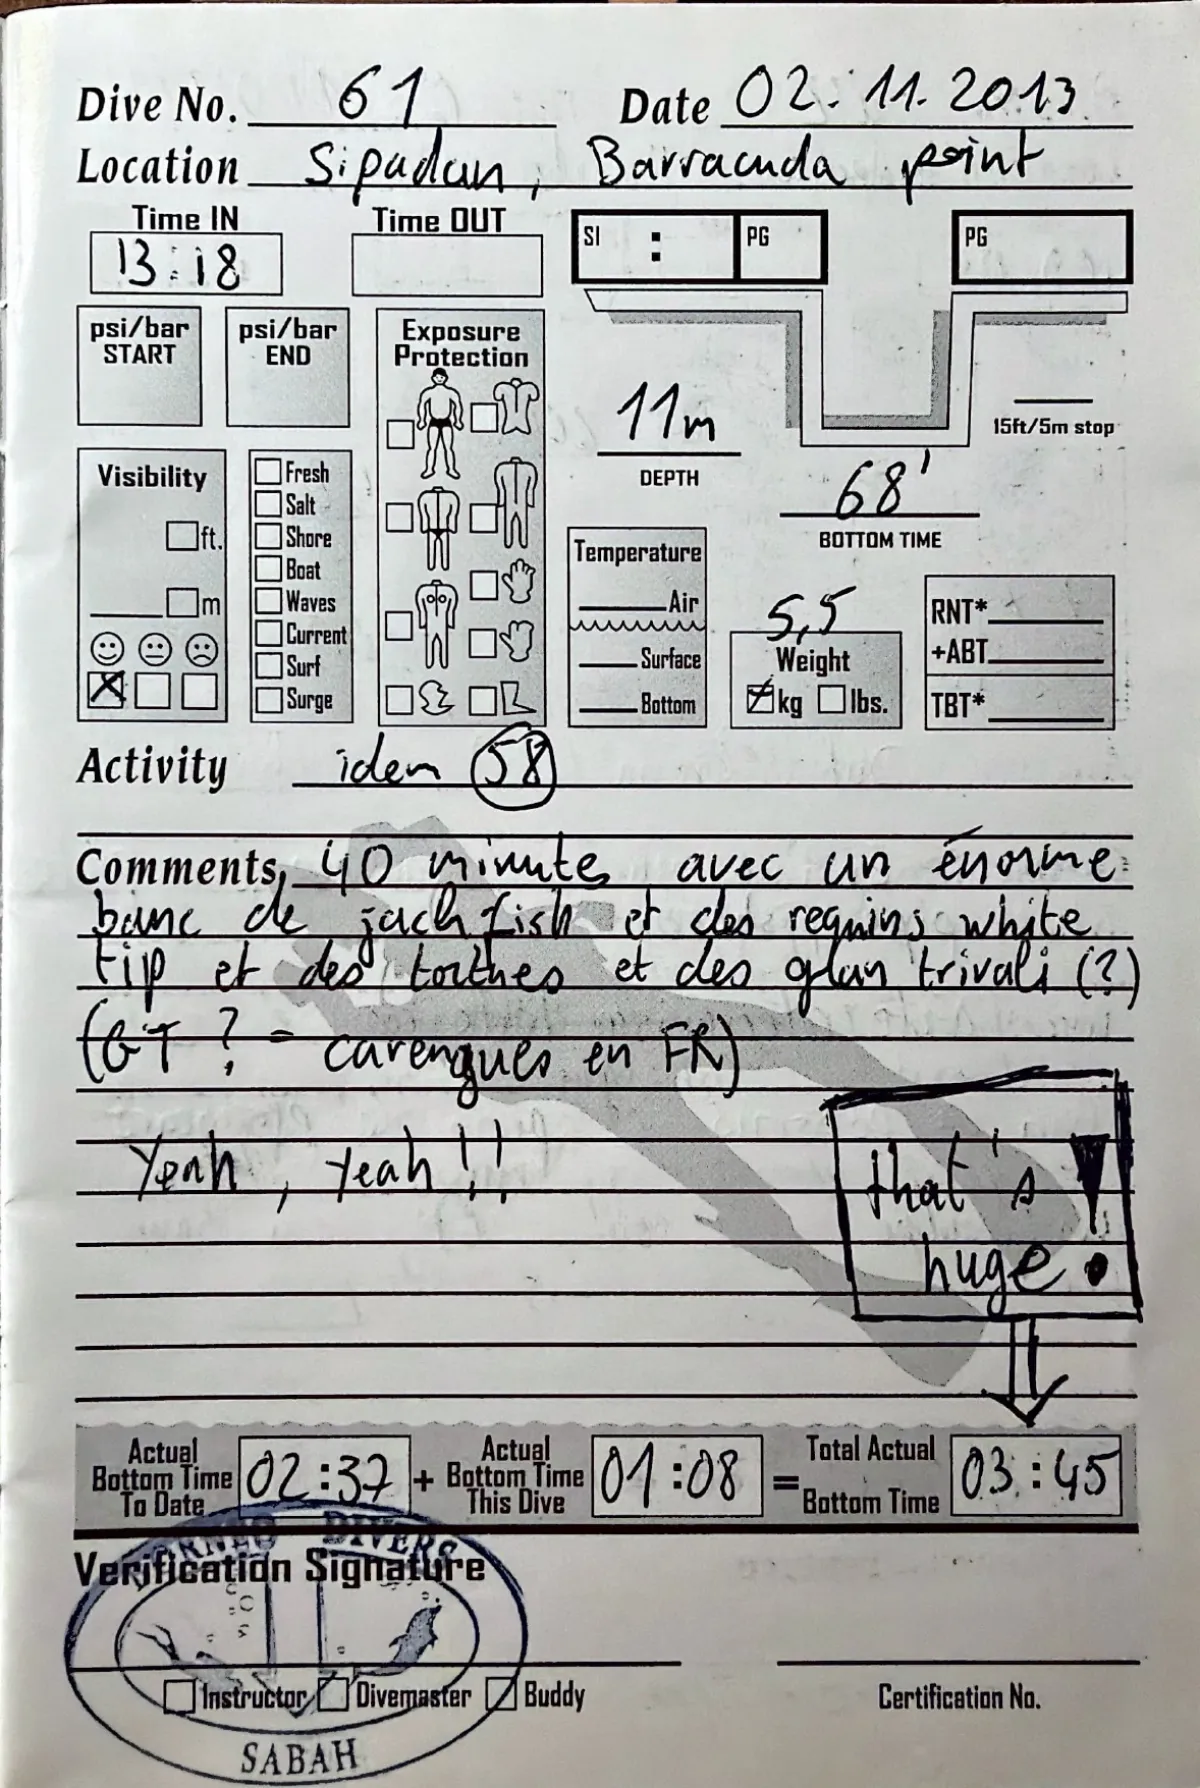 Dive No. 61 Date 02.11.2013
Location Sipadan, Barracuda point
Time IN Time OUT
13:18
SI : PG PG
psi/bar START psi/bar END
Exposure Protection
11m
DEPTH
15ft/5m stop
68'
BOTTOM TIME
Visibility
ft.
m
Fresh
Salt
Shore
Boat
Waves
Current
Surf
Surge
Temperature
Air
Surface
Bottom
5,5
Weight
kg lbs.
RNT*
+ABT
TBT*
Activity idem 58
Comments 40 minutes avec un énorme
banc de jach fish et des requins white
tip et des tortues et des glan trivali (?)
(GT ? = carengues en FR)
Yeah, yeah !!
that's
huge !
Actual Bottom Time To Date 02:37 + Actual Bottom Time This Dive 01:08 = Total Actual Bottom Time 03:45
BORNEO DIVERS
Verification Signature
Instructor Divemaster Buddy
Certification No.
SABAH